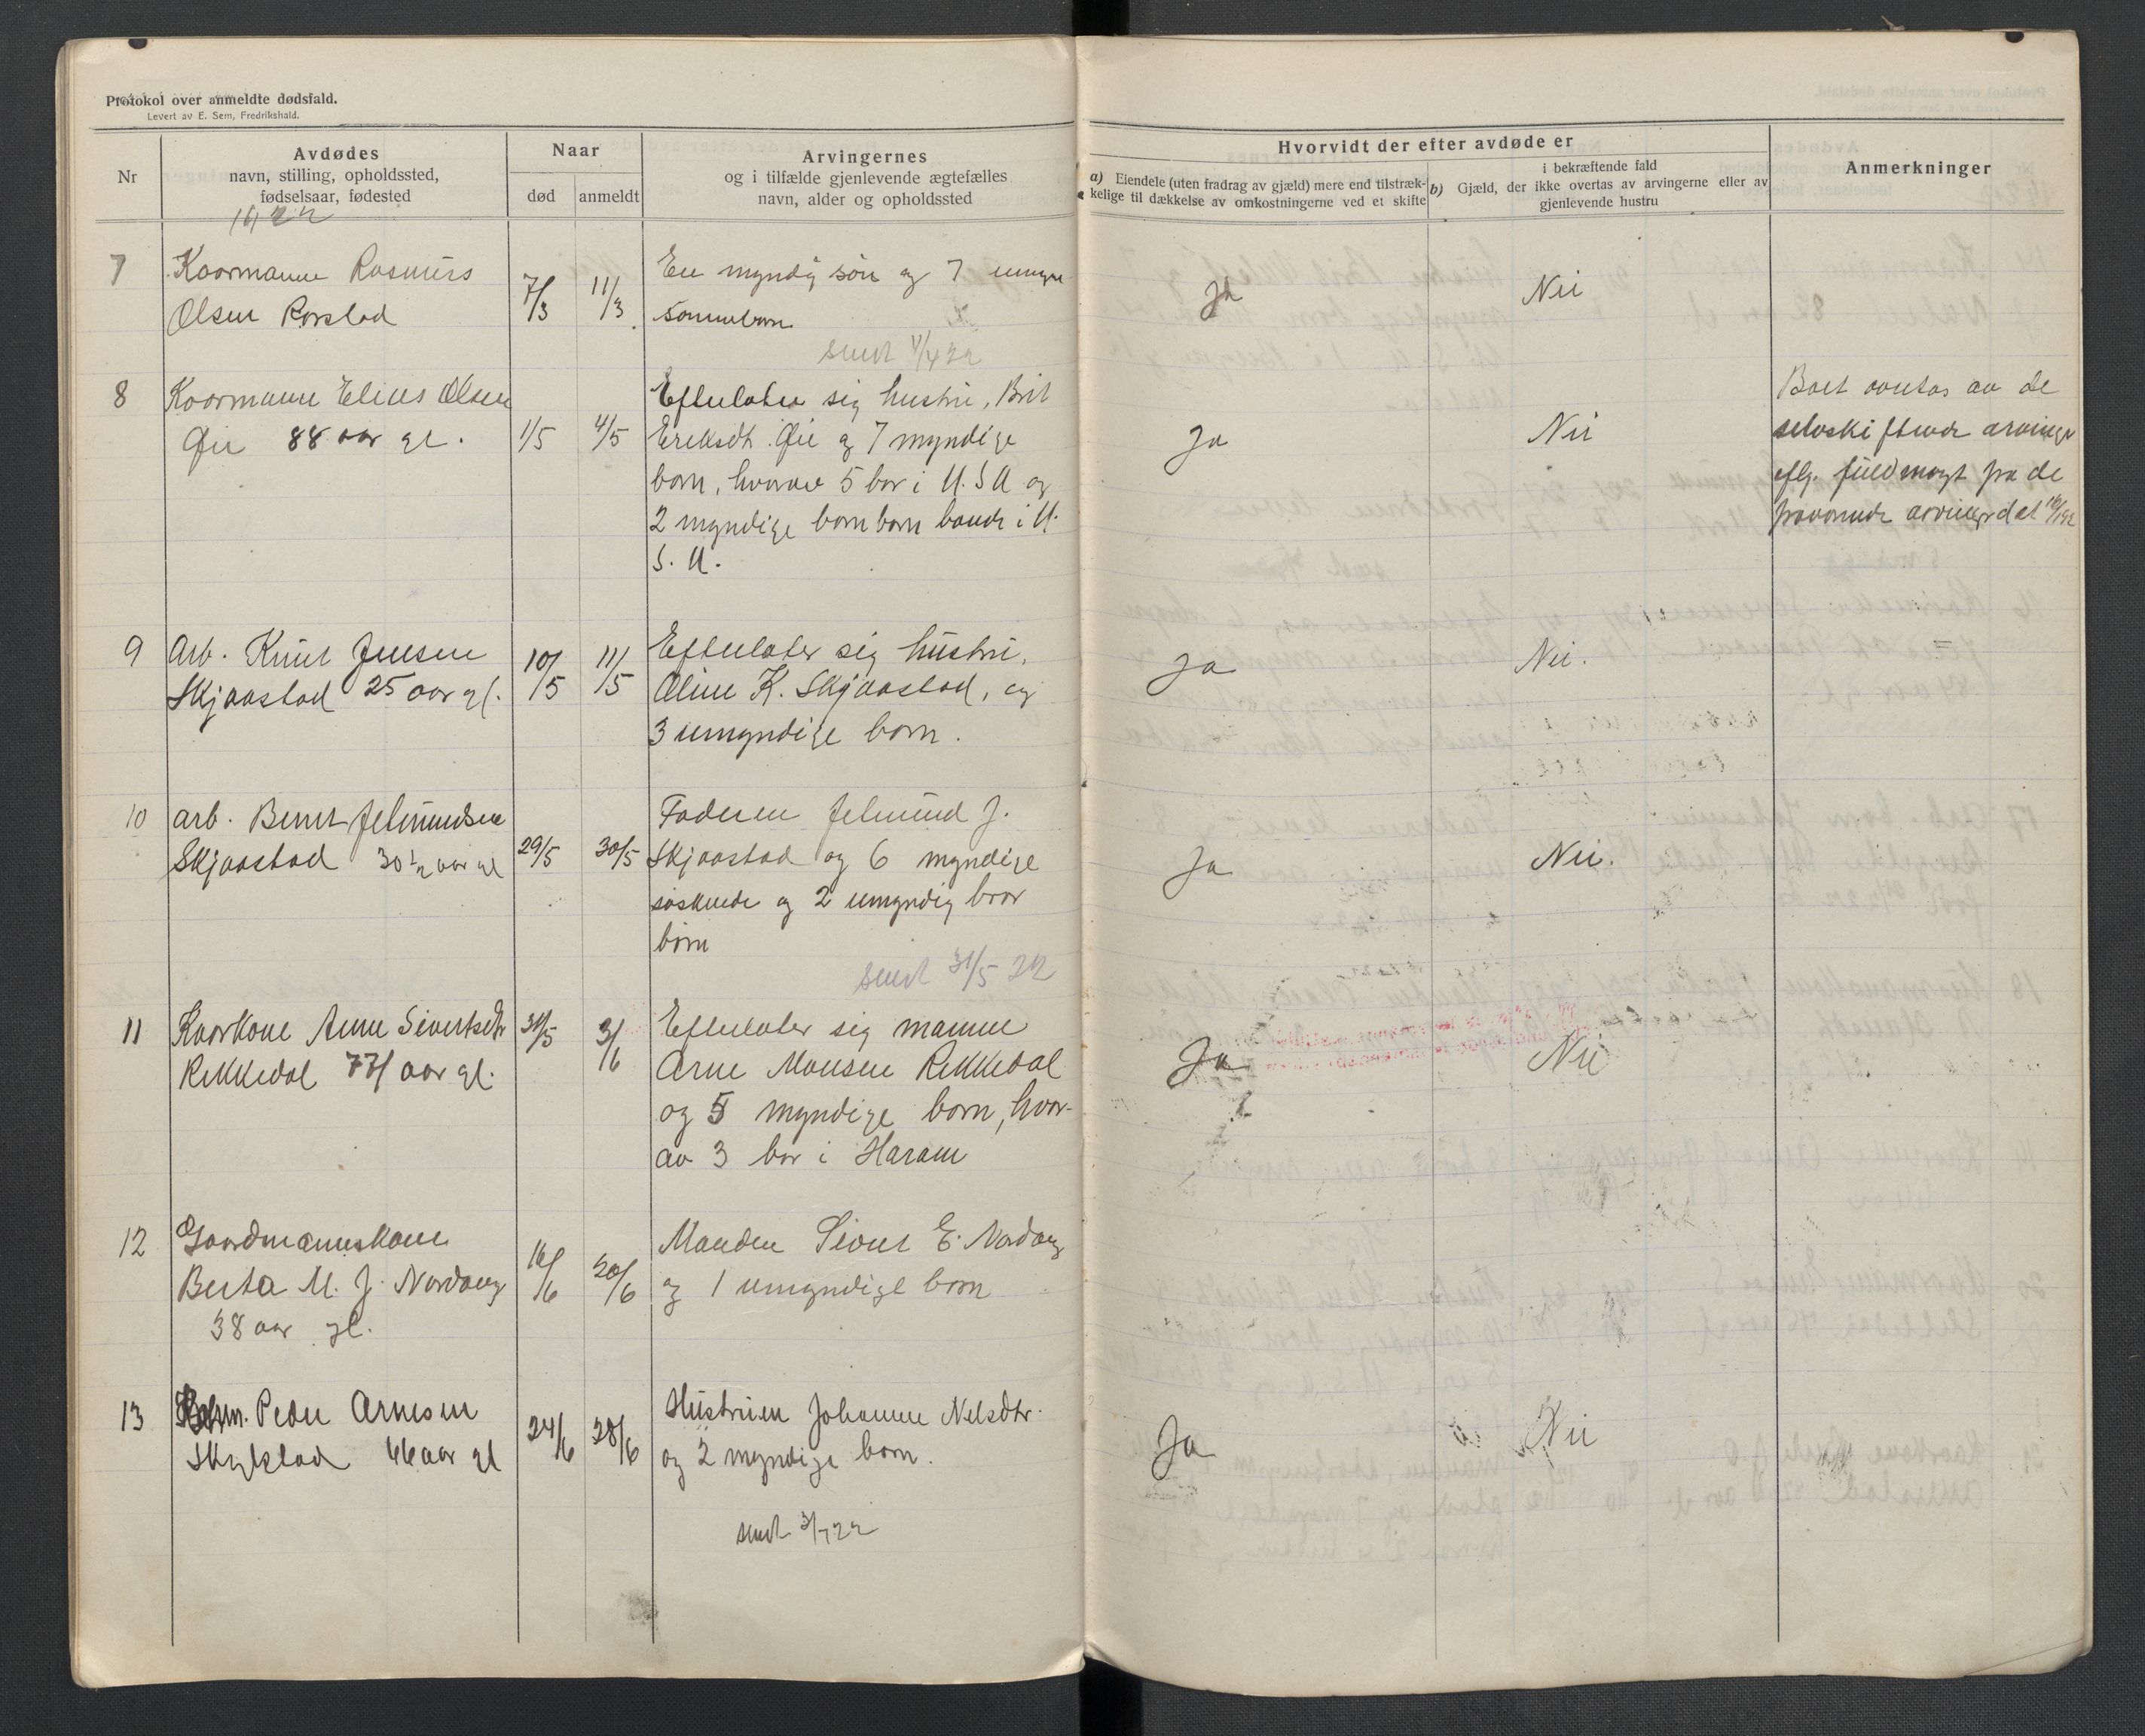 Protokol over anmeldte dødsfald.
Levert av E. Sem, Fredrikshald.
Nr
Avdødes
navn, stilling, opholdssted,
fødselsaar, fødested
Naar
død
anmeldt
Arvingernes
og i tilfælde gjenlevende ægtefælles
navn, alder og opholdssted
Hvorvidt der efter avdøde er
a) Eiendele (uten fradrag av gjæld) mere end tilstræk-
kelige til dækkelse av omkostningerne ved et skifte
i bekræftende fald
b) Gjæld, der ikke overtas av arvingerne eller av
gjenlevende hustru
Anmerkninger
1922
7
Kaarmann Rasmus
Olsen Rørstad
7/3
11/3
En myndig søn og 7 umyn
sønneborn
sendt 11/4 22
Ja
Nei
8
Kaarmann Elias Olsen
Øie 88 aar gl.
1/5
4/5
Efterlater sig hustru, Brit
Eriksdt. Øie og 7 myndige
born, hvorav 5 bor i U.S.A og
2 myndige barnborn boende i U.
S. A.
Ja
Nei
Boet overtas av de
selvskiftende arvinger
eflg. fuldmagt fra de
fraværende arvinger dat
9
Arb. Knut Jensen
Skjaastad 25 aar gl.
10/5
11/5
Efterlater sig hustru,
Oline K. Skjaastad, og
3 umyndige born.
Ja
Nei.
10
Arb. Bernt Jetmundsen
Skjaastad 30 1/2 aar gl
29/5
30/5
Faderen Jetmund J.
Skjaastad og 6 myndige
søskende og 2 umyndig bror
børn
sendt 31/5 22
Ja
Nei.
11
Kaarkone Anne Sivertsdtr
Rekkedal 77 aar gl.
31/5
3/6
Efterlater sig manne
Arne Monsen Rekkedal
og 5 myndige born, hvor-
av 3 bor i Haram
Ja
Nei
12
Gaardmannskone
Berta M. J. Nordang
38 aar gl.
16/6
20/6
Manden Sivert E. Nordang
og 1 umyndige born
13
Peder Arnesen
Skylstad 66 aar gl
24/6
28/6
Hustruen Johanne Nelsdtr.
og 2 myndige born.
sendt 3/7 22
Ja
Nei